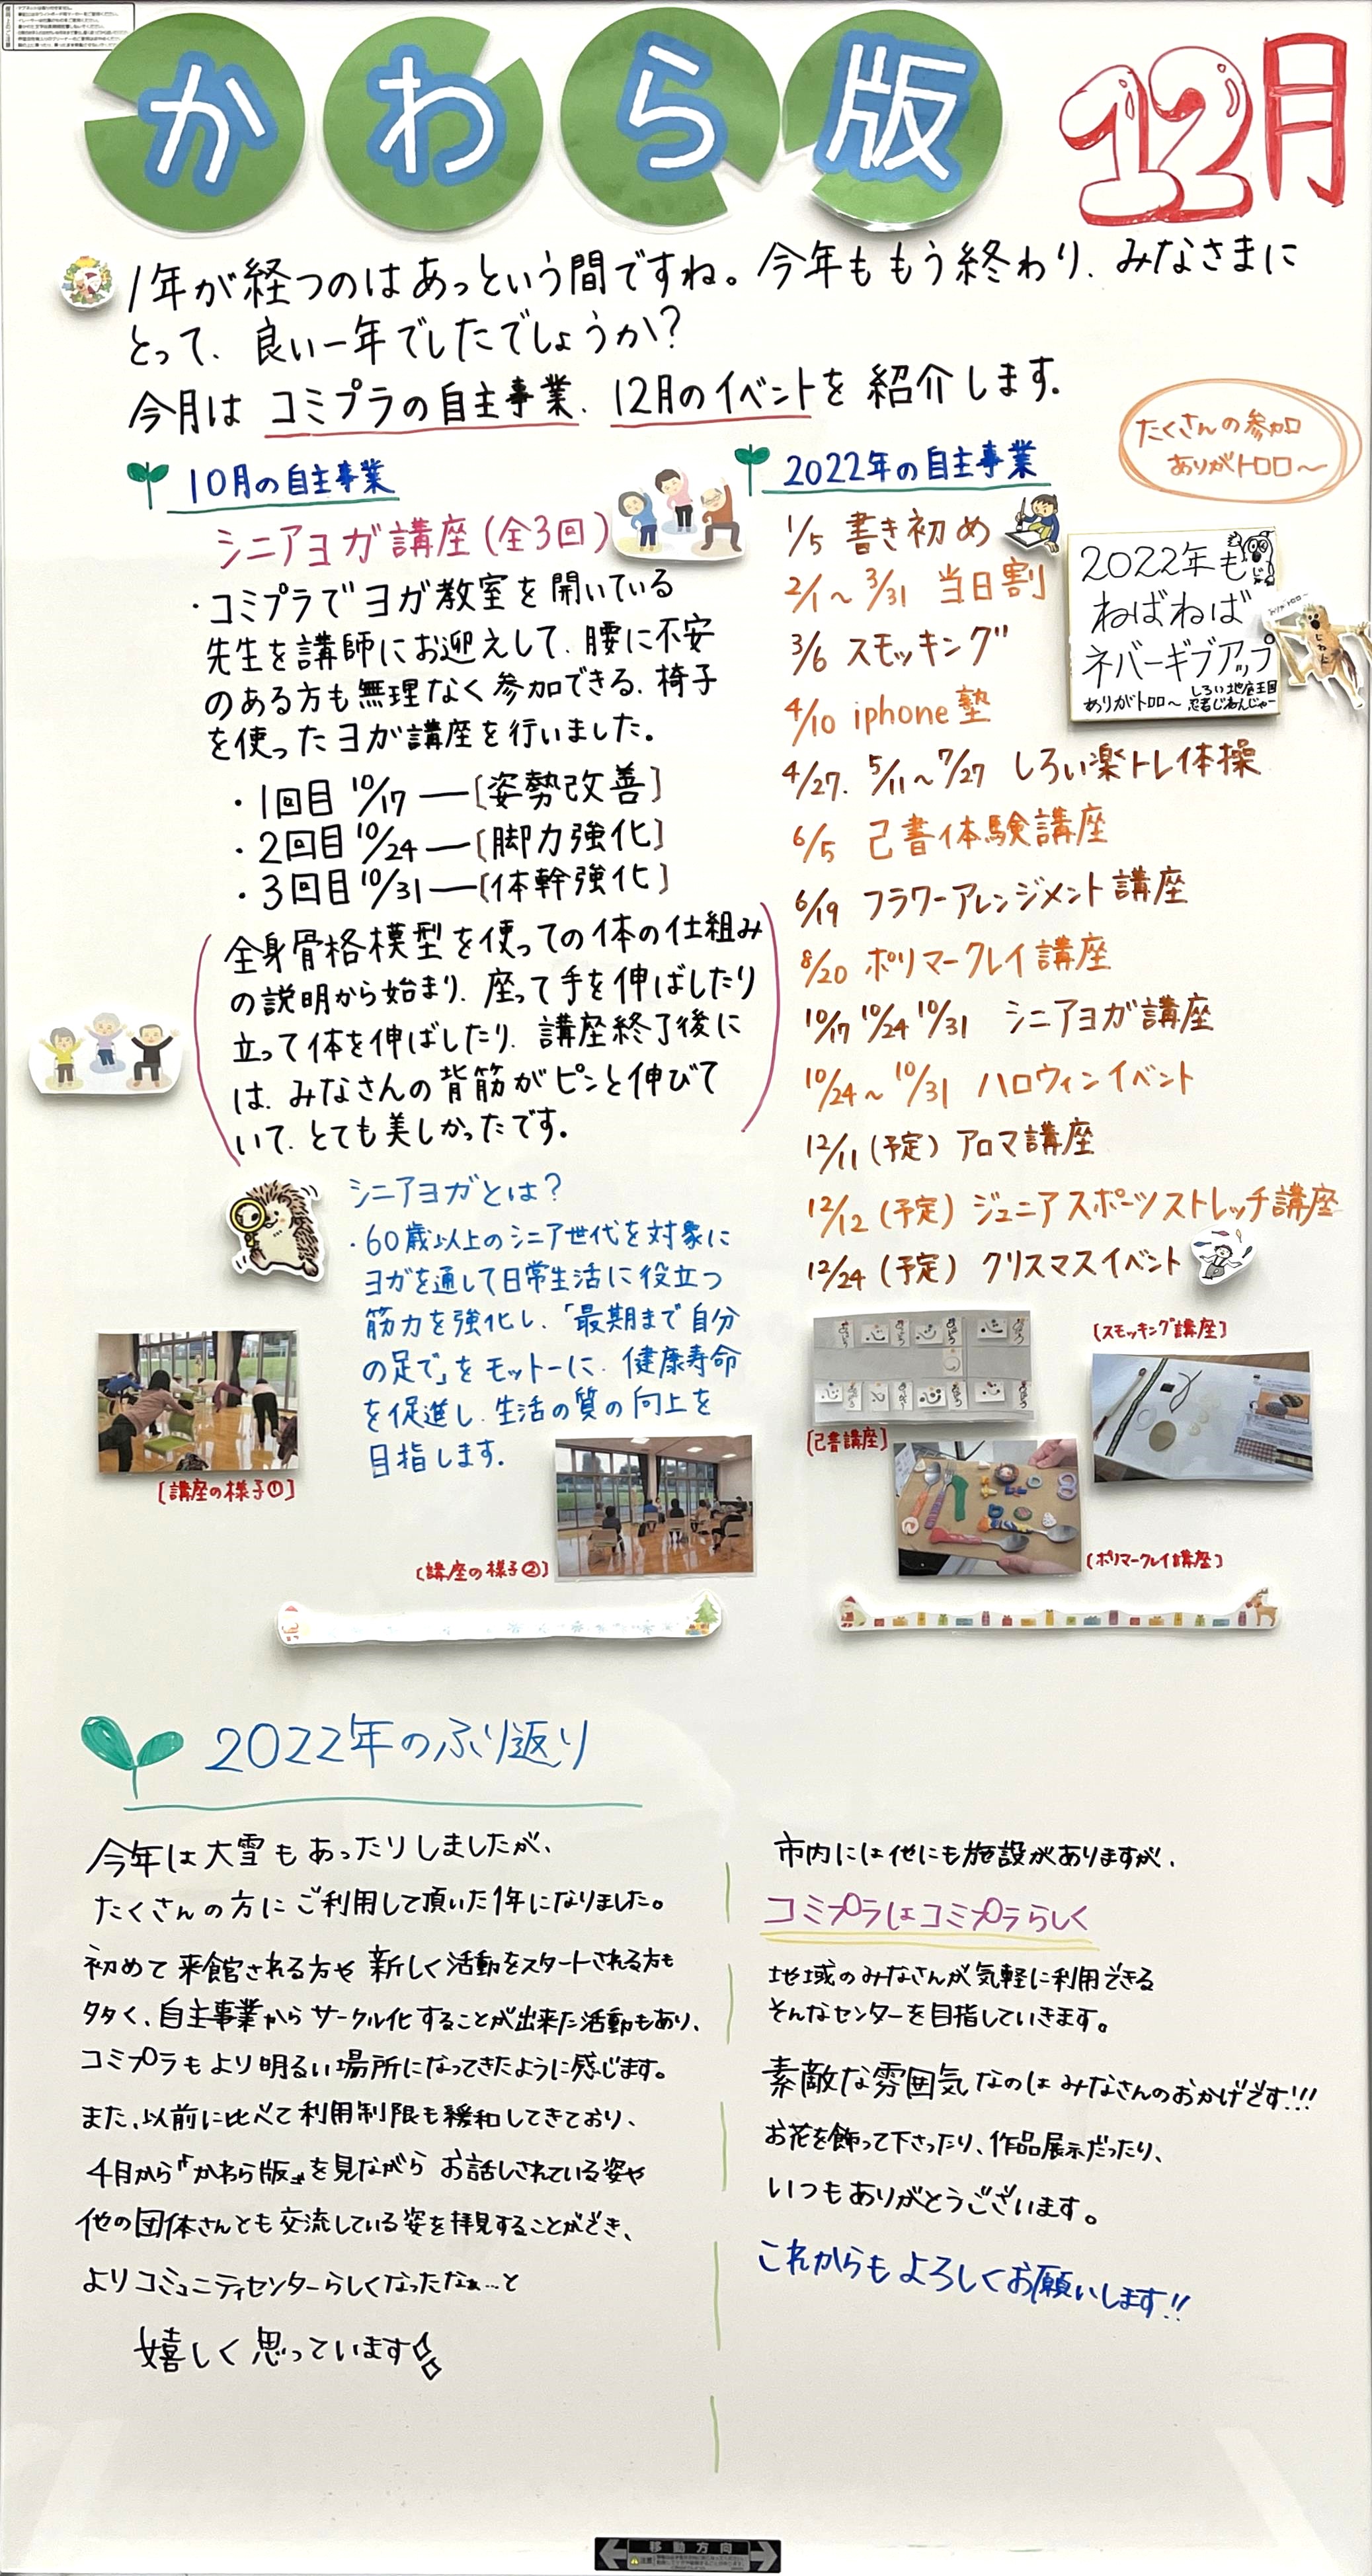 かわら版
12月
1年が経つのはあっという間ですね。今年ももう終わり、みなさまに
とって、良い一年でしたでしょうか?
今月は コミプラの自主事業、12月のイベントを 紹介します。
10月の自主事業
シニアヨガ講座(全3回)
・コミプラでヨガ教室を開いている
先生を講師にお迎えして、腰に不安
のある方も無理なく参加できる、椅子
を使ったヨガ講座を行いました。
・1回目 10/17 ―[姿勢改善]
・2回目 10/24 ―[脚力強化]
・3回目 10/31 ―[体幹強化]
全身骨格模型を使っての体の仕組み
の説明から始まり、座って手を伸ばしたり
立って体を伸ばしたり、講座終了後に
は、みなさんの背筋がピンと伸びて
いて、とても美しかったです。
シニアヨガとは?
・60歳以上のシニア世代を対象に
ヨガを通して日常生活に役立つ
筋力を強化し、「最期まで自分
の足で」をモットーに、健康寿命
を促進し、生活の質の向上を
目指します。
[講座の様子①]
[講座の様子②]
2022年の自主事業
たくさんの参加
ありがトロロ～
1/5 書き初め
2/1～3/31 当日割
3/6 スモッキング
4/10 iphone塾
4/27. 5/11～7/27 しろい楽トレ体操
6/5 己書体験講座
6/19 フラワーアレンジメント講座
8/20 ポリマークレイ講座
10/17 10/24 10/31 シニアヨガ講座
10/24～10/31 ハロウィンイベント
12/11(予定) アロマ講座
12/12(予定) ジュニアスポーツストレッチ講座
12/24(予定) クリスマスイベント
2022年も
ねばねば
ネバーギブアップ
ありがトロロ～ しろい地底王国
忍者じねんじゃー
[己書講座]
[スモッキング講座]
[ポリマークレイ講座]
2022年のふり返り
今年は大雪もあったりしましたが、
たくさんの方にご利用して頂いた1年になりました。
初めて来館される方や新しく活動をスタートされる方も
多く、自主事業からサークル化することが出来た活動もあり、
コミプラもより明るい場所になってきたように感じます。
また、以前に比べて利用制限も緩和してきており、
4月から『かわら版』を見ながらお話しされている姿や
他の団体さんとも交流している姿を拝見することができ、
よりコミュニティセンターらしくなったなぁ…と
嬉しく思っています
市内には他にも施設がありますが、
コミプラはコミプラらしく
地域のみなさんが気軽に利用できる
そんなセンターを目指していきます。
素敵な雰囲気なのはみなさんのおかげです!!!
お花を飾って下さったり、作品展示だったり、
いつもありがとうございます。
これからもよろしくお願いします!!
移動方向